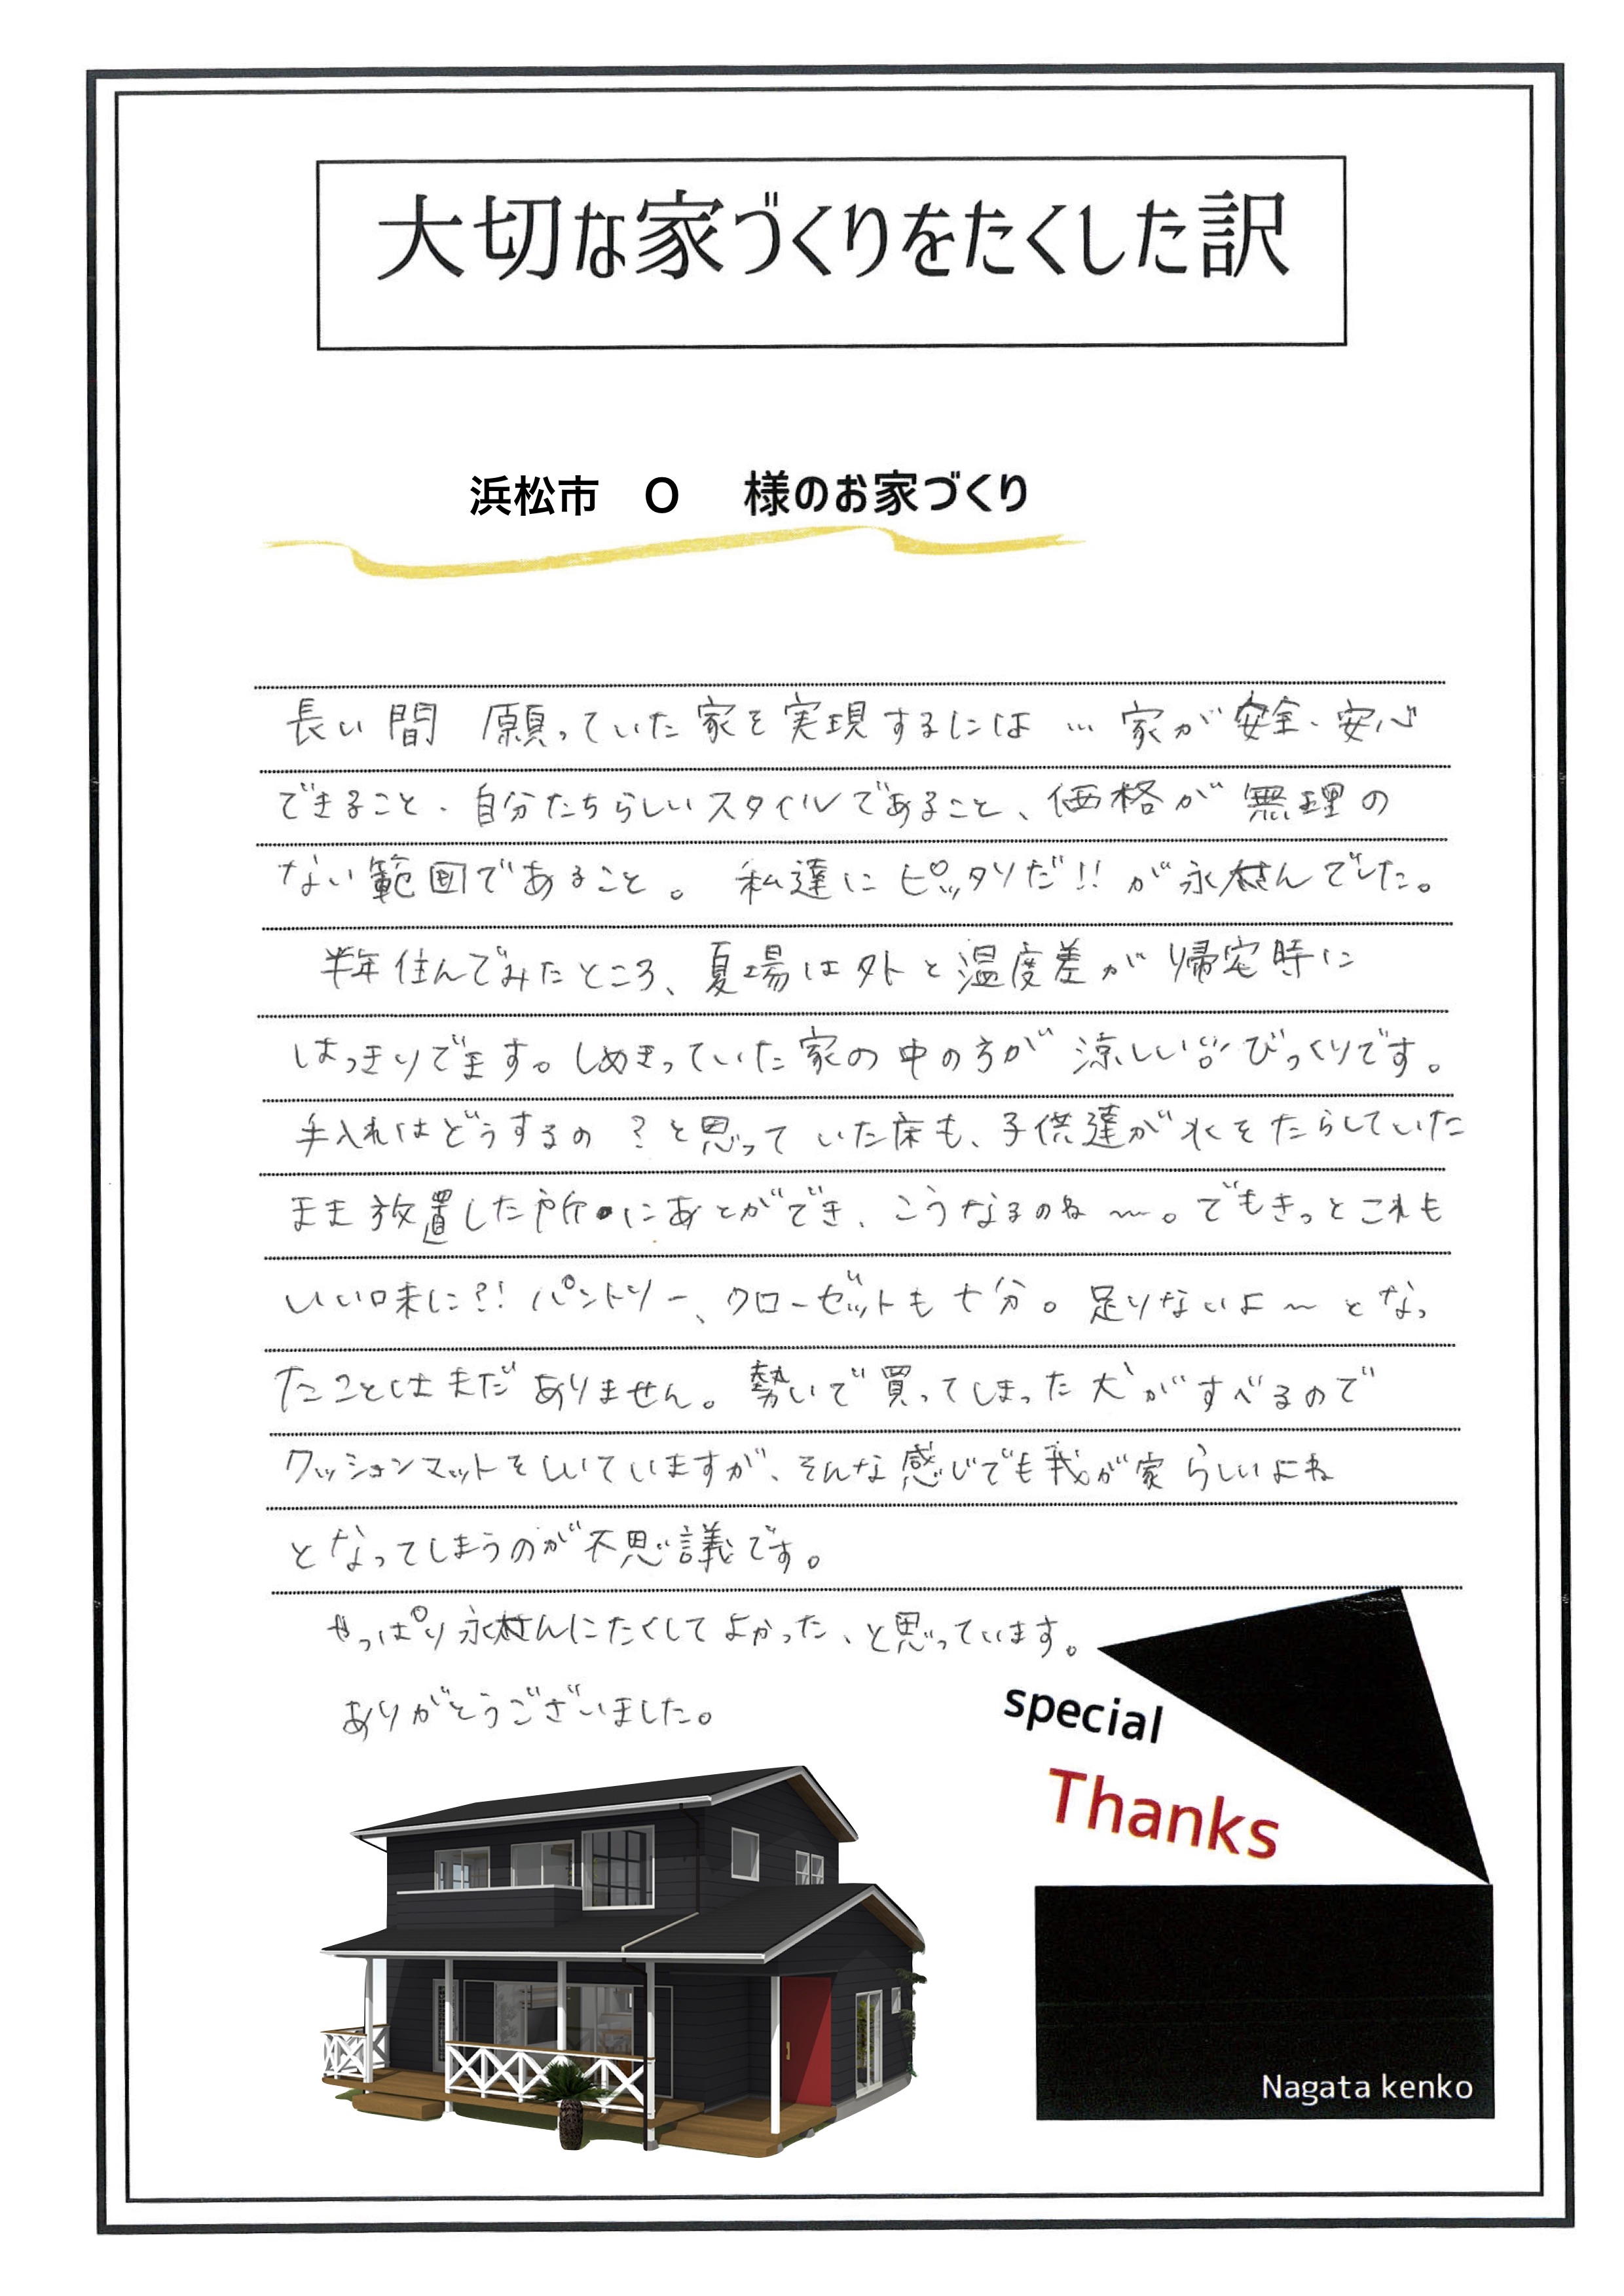 大切な家づくりをたくした訳
浜松市 O 様のお家づくり
長い間 願っていた家を実現するには … 家が安全、安心
できること、自分たちらしいスタイルであること、価格が無理の
ない範囲であること。 私達にピッタリだ!! が永材さんでした。
半年住んでみたところ、夏場は外と温度差が帰宅時に
はっきりでます。しめきっていた家の中の方が涼しい!! びっくりです。
手入れはどうするの?と思っていた床も、子供達が水をたらしていた
まま放置した所にあとができ、こうなるのね〜。でもきっとこれも
いい味に?! パントリー、クローゼットも十分。足りないよ〜となっ
たことはまだありません。勢いで買ってしまった犬がすべるので
クッションマットをしいていますが、そんな感じでも我が家らしいよね
となってしまうのが不思議です。
やっぱり永材さんにたくしてよかった、と思っています。
ありがとうございました。
special
Thanks
Nagata kenko